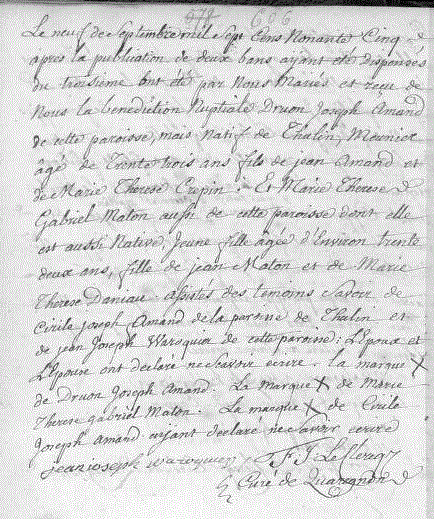 606
Le neuf de Septembre mil Sept Cens Nonante Cinq
après la publication de deux bans ayant été dispensés
du troisième ont été par Nous Mariés et reçu de
Nous la benediction Nuptiale Druon Joseph Amand
de cette paroisse, mais Natif de Thalin, Meunier
âgé de Trente trois ans fils de jean Amand et
de Marie Therese Crepin : Et Marie Therese
Gabriel Maton aussi de cette paroisse dont elle
est aussi Native, Jeune fille âgée d'Environ trente
deux ans, fille de jean Maton et de Marie
Therese Daniau : assistés des temoins Savoir de
Cirile joseph Amand de la paroisse de Thalin et
de jean Joseph Waroquier de cette paroisse : L'Epoux et
L'Epouse ont declaré ne Savoir ecrire. la marque X
de Druon Joseph Amand. La Marque X de Marie
Therese gabriel Maton. La marque X de Cirile
Joseph Amand ayant declaré ne savoir ecrire
jean joseph waroquier F J Le Clercq
Curé de Quaregnon